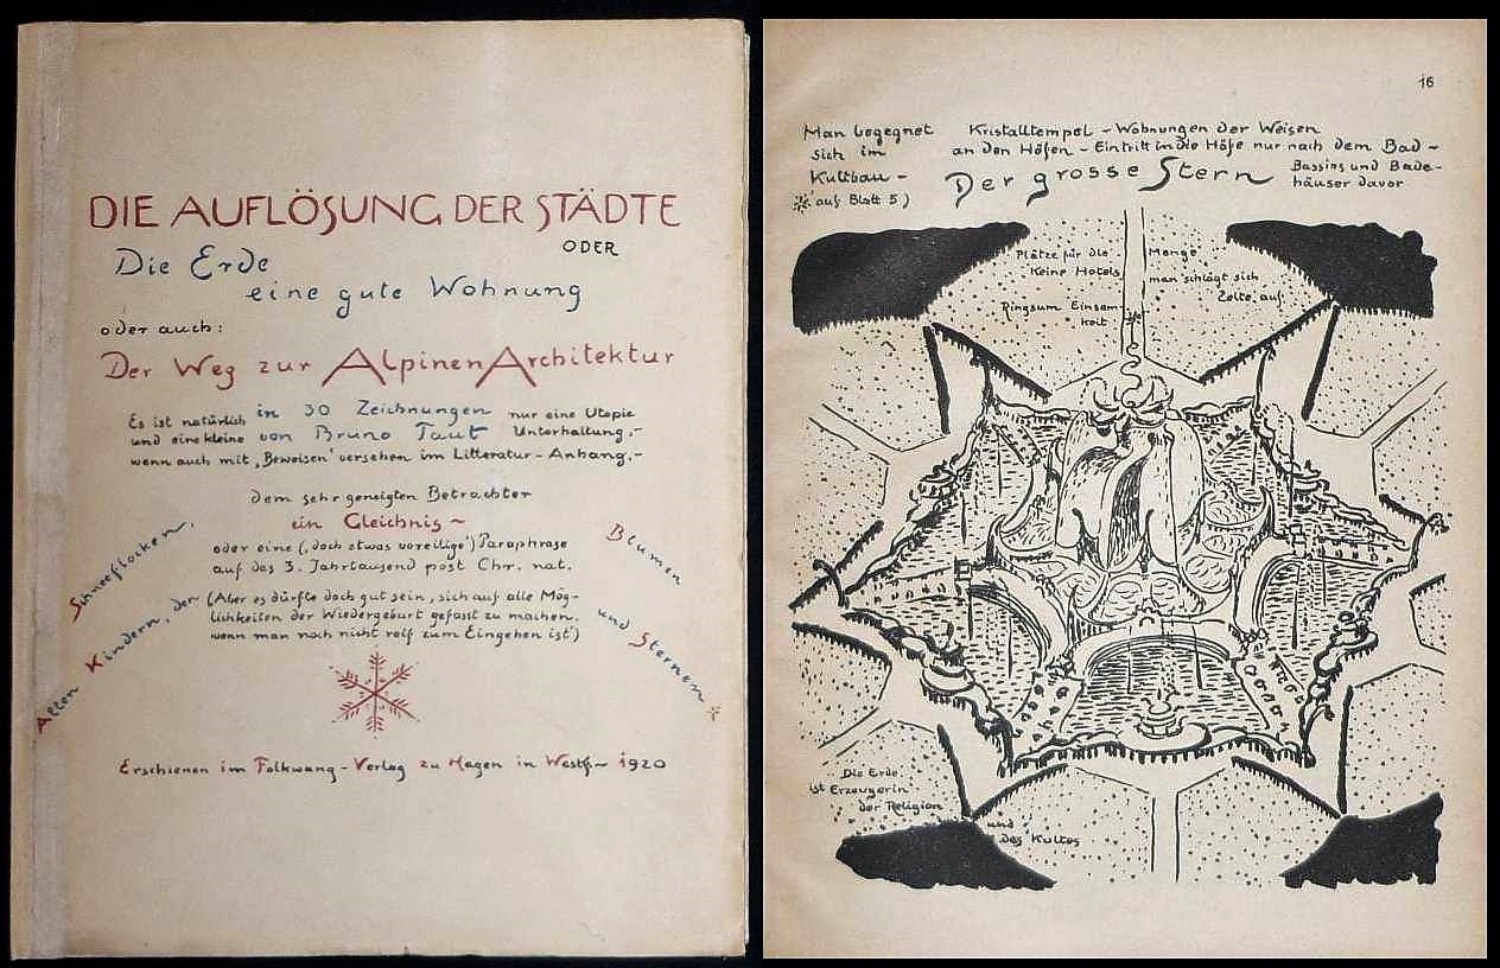 DIE AUFLÖSUNG DER STÄDTE
ODER
Die Erde
eine gute Wohnung
oder auch:
Der Weg zur Alpinen Architektur
Es ist natürlich in 30 Zeichnungen nur eine Utopie
und eine kleine von Bruno Taut Unterhaltung,-
wenn auch mit ‚Beweisen' versehen im Litteratur-Anhang,-
dem sehr geneigten Betrachter
ein Gleichnis ~
oder eine (‚doch etwas voreilige') Paraphrase
auf das 3. Jahrtausend post Chr. nat.
(Aber es dürfte doch gut sein, sich auf alle Mög-
lichkeiten der Wiedergeburt gefasst zu machen,
wenn man noch nicht reif zum Eingehen ist)
Schneeflocken,
Blumen
Allen Kindern, der
und Sternen
Erschienen im Folkwang-Verlag zu Hagen in Westf ~ 1920
16
Man begegnet
sich im
Kultbau -
auf Blatt 5)
Kristalltempel - Wohnungen der Weisen
an den Höfen - Eintritt in die Höfe nur nach dem Bad -
Der grosse Stern
Bassins und Bade-
häuser davor
Plätze für die Menge
Keine Hotels man schlägt sich
Zelte auf.
Ringsum Einsam-
keit
Die Erde
ist Erzeugerin
der Religion
und
des Kultes